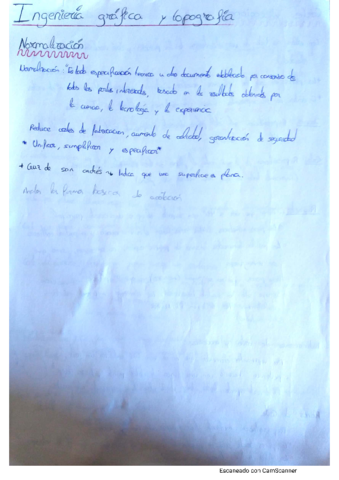 Ingeniería gráfica y topografía
Normalización
Normalización: Es toda especificación técnica u otro documento establecido por consenso de
todas las partes interesadas, basado en los resultados obtenidos por
la ciencia, la tecnología y la experiencia.
Reduce costes de fabricación, aumento de calidad, garantización de seguridad
* Unificar, simplificar y especificar*
* Cruz de san andrés → Indica que una superficie es plana.
Escaneado con CamScanner